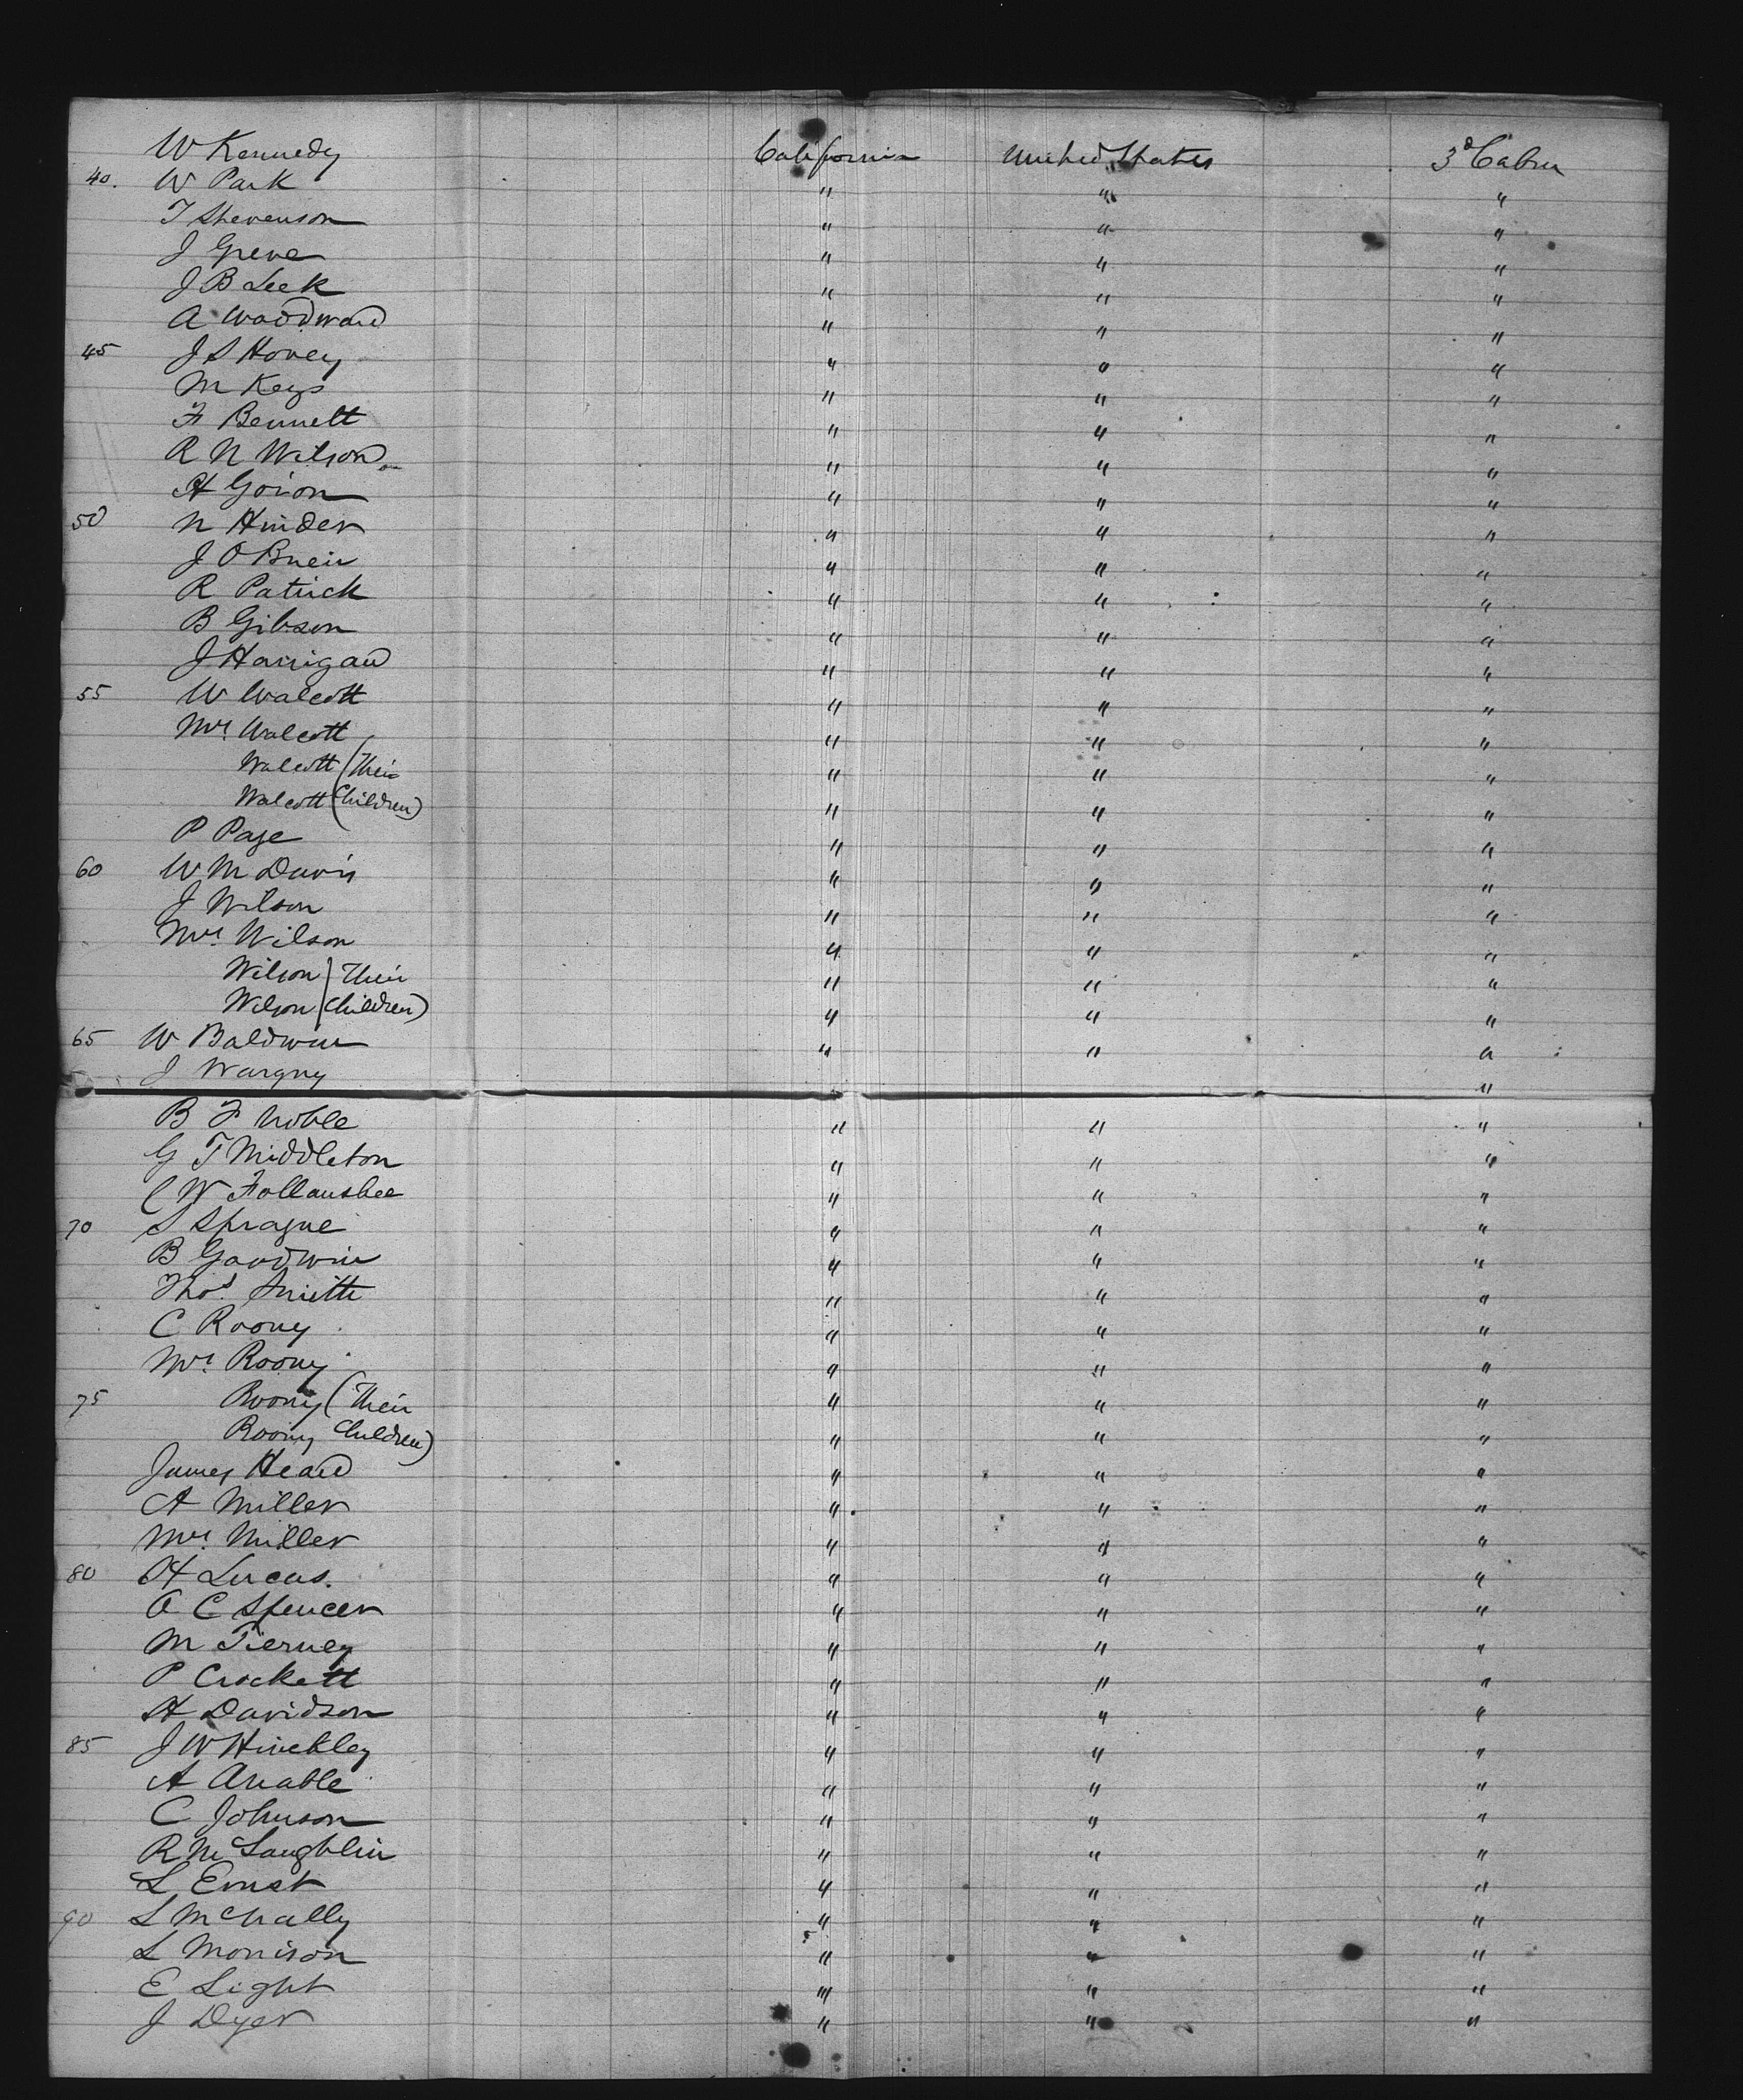 W Kennedy California United States 3d Cabin
40. W Park " " "
T Stevenson " " "
J Greve " " "
J B Leek " " "
A Woodward " " "
45 J S Hovey " " "
M Keys " " "
F Bennett " " "
R N Wilson " " "
H Goion " " "
50 N Hinder " " "
J O Brien " " "
R Patrick " " "
B Gibson " " "
J Harrigan " " "
55 W Walcott " " "
Mrs Walcott " " "
Walcott (Their " " "
Walcott Children) " " "
P Page " " "
60 W M Davis " " "
J Wilson " " "
Mrs Wilson " " "
Wilson (Their " " "
Wilson Children) " " "
65 W Baldwin " " "
J Wargny "
B F Noble " " "
G T Middleton " " "
C W Follansbee " " "
70 S Sprague " " "
B Goodwin " " "
Thos. Smith " " "
C Roony " " "
Mrs Roony " " "
75 Roony (Their " " "
Roony Children) " " "
James Head " " "
A Miller " " "
Mrs Miller " " "
80 H Lucas. " " "
A C Spencer " " "
M Tierney " " "
P Crockett " " "
H Davidson " " "
85 J W Hinckley " " "
A Anable " " "
C Johnson " " "
R McLaughlin " " "
L Ernst " " "
90 L McNally " " "
L Morrison " " "
E Light " " "
J Dyer " " "